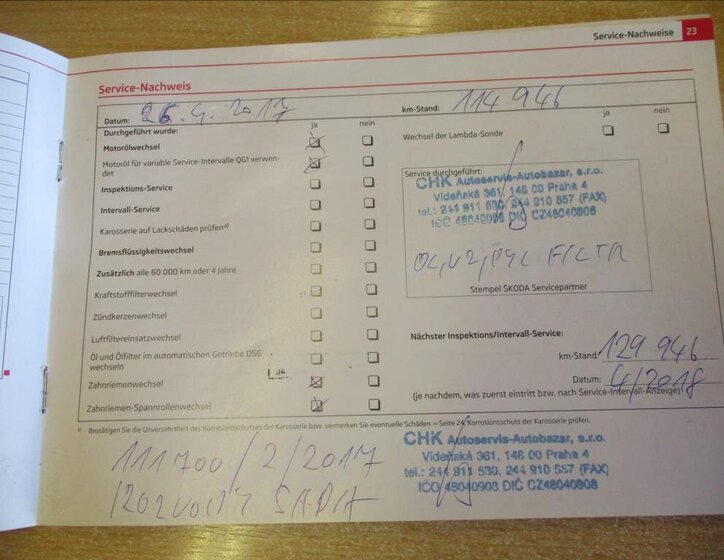 Service-Nachweise 23
Service-Nachweis
Datum: 26. 4. 2017
km-Stand: 114 946
ja nein
ja nein
Durchgeführt wurde:
Motorölwechsel
Wechsel der Lambda-Sonde
Motoröl für variable Service-Intervalle QG1 verwen-
det
Inspektions-Service
Intervall-Service
Karosserie auf Lackschäden prüfen a)
Bremsflüssigkeitswechsel
Zusätzlich alle 60 000 km oder 4 Jahre
Kraftstofffilterwechsel
Zündkerzenwechsel
Luftfiltereinsatzwechsel
Öl und Ölfilter im automatischen Getriebe DSG
wechseln
Zahnriemenwechsel
Zahnriemen-Spannrollenwechsel
Service durchgeführt:
CHK Autoservis-Autobazar, s.r.o.
Vídeňská 361, 148 00 Praha 4
tel.: 244 911 530, 244 910 557 (FAX)
IČO 48040908 DIČ CZ48040908
FILTR
Stempel ŠKODA Servicepartner
Nächster Inspektions/Intervall-Service:
km-Stand: 129 946
Datum: 4/2018
(je nachdem, was zuerst eintritt bzw. nach Service-Intervall-Anzeige)
a) Bestätigen Sie die Unversehrtheit des Korrosionsschutzes der Karosserie bzw. vermerken Sie eventuelle Schäden ⇒ Seite 24, Korrosionsschutz der Karosserie prüfen.
111700/2/2017
ROZVODY SADA
CHK Autoservis-Autobazar, s.r.o.
Vídeňská 361, 148 00 Praha 4
tel.: 244 911 530, 244 910 557 (FAX)
IČO 48040908 DIČ CZ48040908